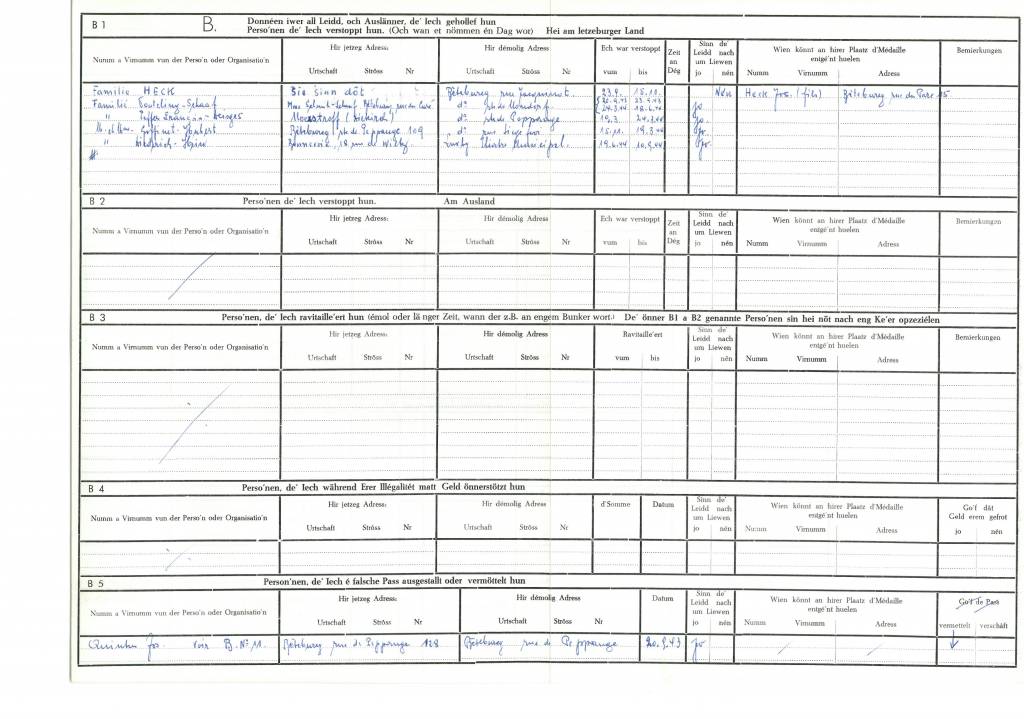 B 1
B.
Donnéen iwer all Leidd, och Auslänner, de' Iech gehollef hun
Perso'nen de' Iech verstoppt hun. (Och wan et nömmen én Dag wor) Hei am letzeburger Land
Numm a Virnumm vun der Perso'n oder Organisatio'n
Hir jetzeg Adress:
Urtschaft Ströss Nr
Hir démolig Adress:
Urtschaft Ströss Nr
Ech war verstoppt
vum bis
Zeit an Dég
Sinn de' Leidd nach um Liewen
jo nén
Wien könnt an hirer Plaatz d'Médaille entgé'nt huelen
Numm Virnumm Adress
Bemierkungen
Familie HECK Sie sinn dôt Béteburg rue Jacquinot 23.9. 15.10. Nén Heck Jos. (fils) Béteburg rue du Parc 15
Familie 20.9.43 23.9.43
24.3.44 18.6.44 jo
" d° rte de Peppange 19.3. 24.3.44 jo
Béteburg rte de Peppange 109 d° 15.11. 19.3.44 jo
" 19.6.44 10.9.44 jo
B 2
Perso'nen de' Iech verstoppt hun. Am Ausland
Numm a Virnumm vun der Perso'n oder Organisatio'n
Hir jetzeg Adress:
Urtschaft Ströss Nr
Hir démolig Adress:
Urtschaft Ströss Nr
Ech war verstoppt
vum bis
Zeit an Dég
Sinn de' Leidd nach um Liewen
jo nén
Wien könnt an hirer Plaatz d'Médaille entgé'nt huelen
Numm Virnumm Adress
Bemierkungen
B 3
Perso'nen, de' Iech ravitaille'ert hun (émol oder länger Zeit, wann der z.B. an engem Bunker wort.) De' önner B1 a B2 genannte Perso'nen sin hei nöt nach eng Ke'er opzeziélen
Numm a Virnumm vun der Perso'n oder Organisatio'n
Hir jetzeg Adress:
Urtschaft Ströss Nr
Hir démolig Adress:
Urtschaft Ströss Nr
Ravitaille'ert
vum bis
Sinn de' Leidd nach um Liewen
jo nén
Wien könnt an hirer Plaatz d'Médaille entgé'nt huelen
Numm Virnumm Adress
Bemierkungen
B 4
Perso'nen, de' Iech während Erer Illégalitét matt Geld önnerstötzt hun
Numm a Virnumm vun der Perso'n oder Organisatio'n
Hir jetzeg Adress:
Urtschaft Ströss Nr
Hir démolig Adress:
Urtschaft Ströss Nr
d'Somme
Datum
Sinn de' Leidd nach um Liewen
jo nén
Wien könnt an hirer Plaatz d'Médaille entgé'nt huelen
Numm Virnumm Adress
Go'f dât Geld erem gefrot
jo nén
B 5
Person'nen, de' Iech é falsche Pass ausgestallt oder vermöttelt hun
Numm a Virnumm vun der Perso'n oder Organisatio'n
Hir jetzeg Adress:
Urtschaft Ströss Nr
Hir démolig Adress:
Urtschaft Ströss Nr
Datum
Sinn de' Leidd nach um Liewen
jo nén
Wien könnt an hirer Plaatz d'Médaille entgé'nt huelen
Numm Virnumm Adress
Go'f de Pass
vermettelt verschâft
Jos. voir B. N° 11. Béteburg rue de Peppange 128 Béteburg rue de Peppange 20.9.43 jo